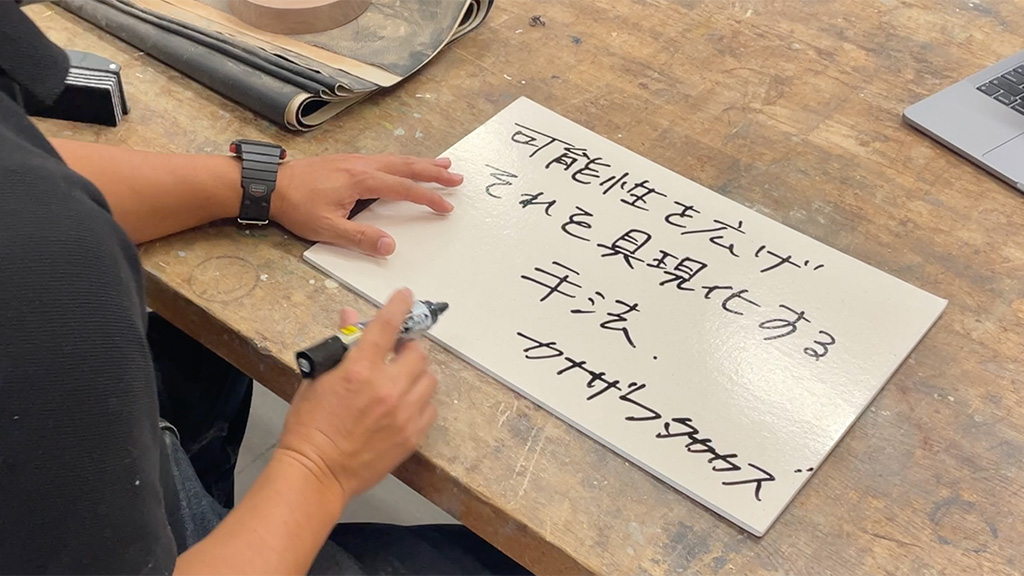 可能性を広げ
それを具現化する
手法.
カナザワタカカズ